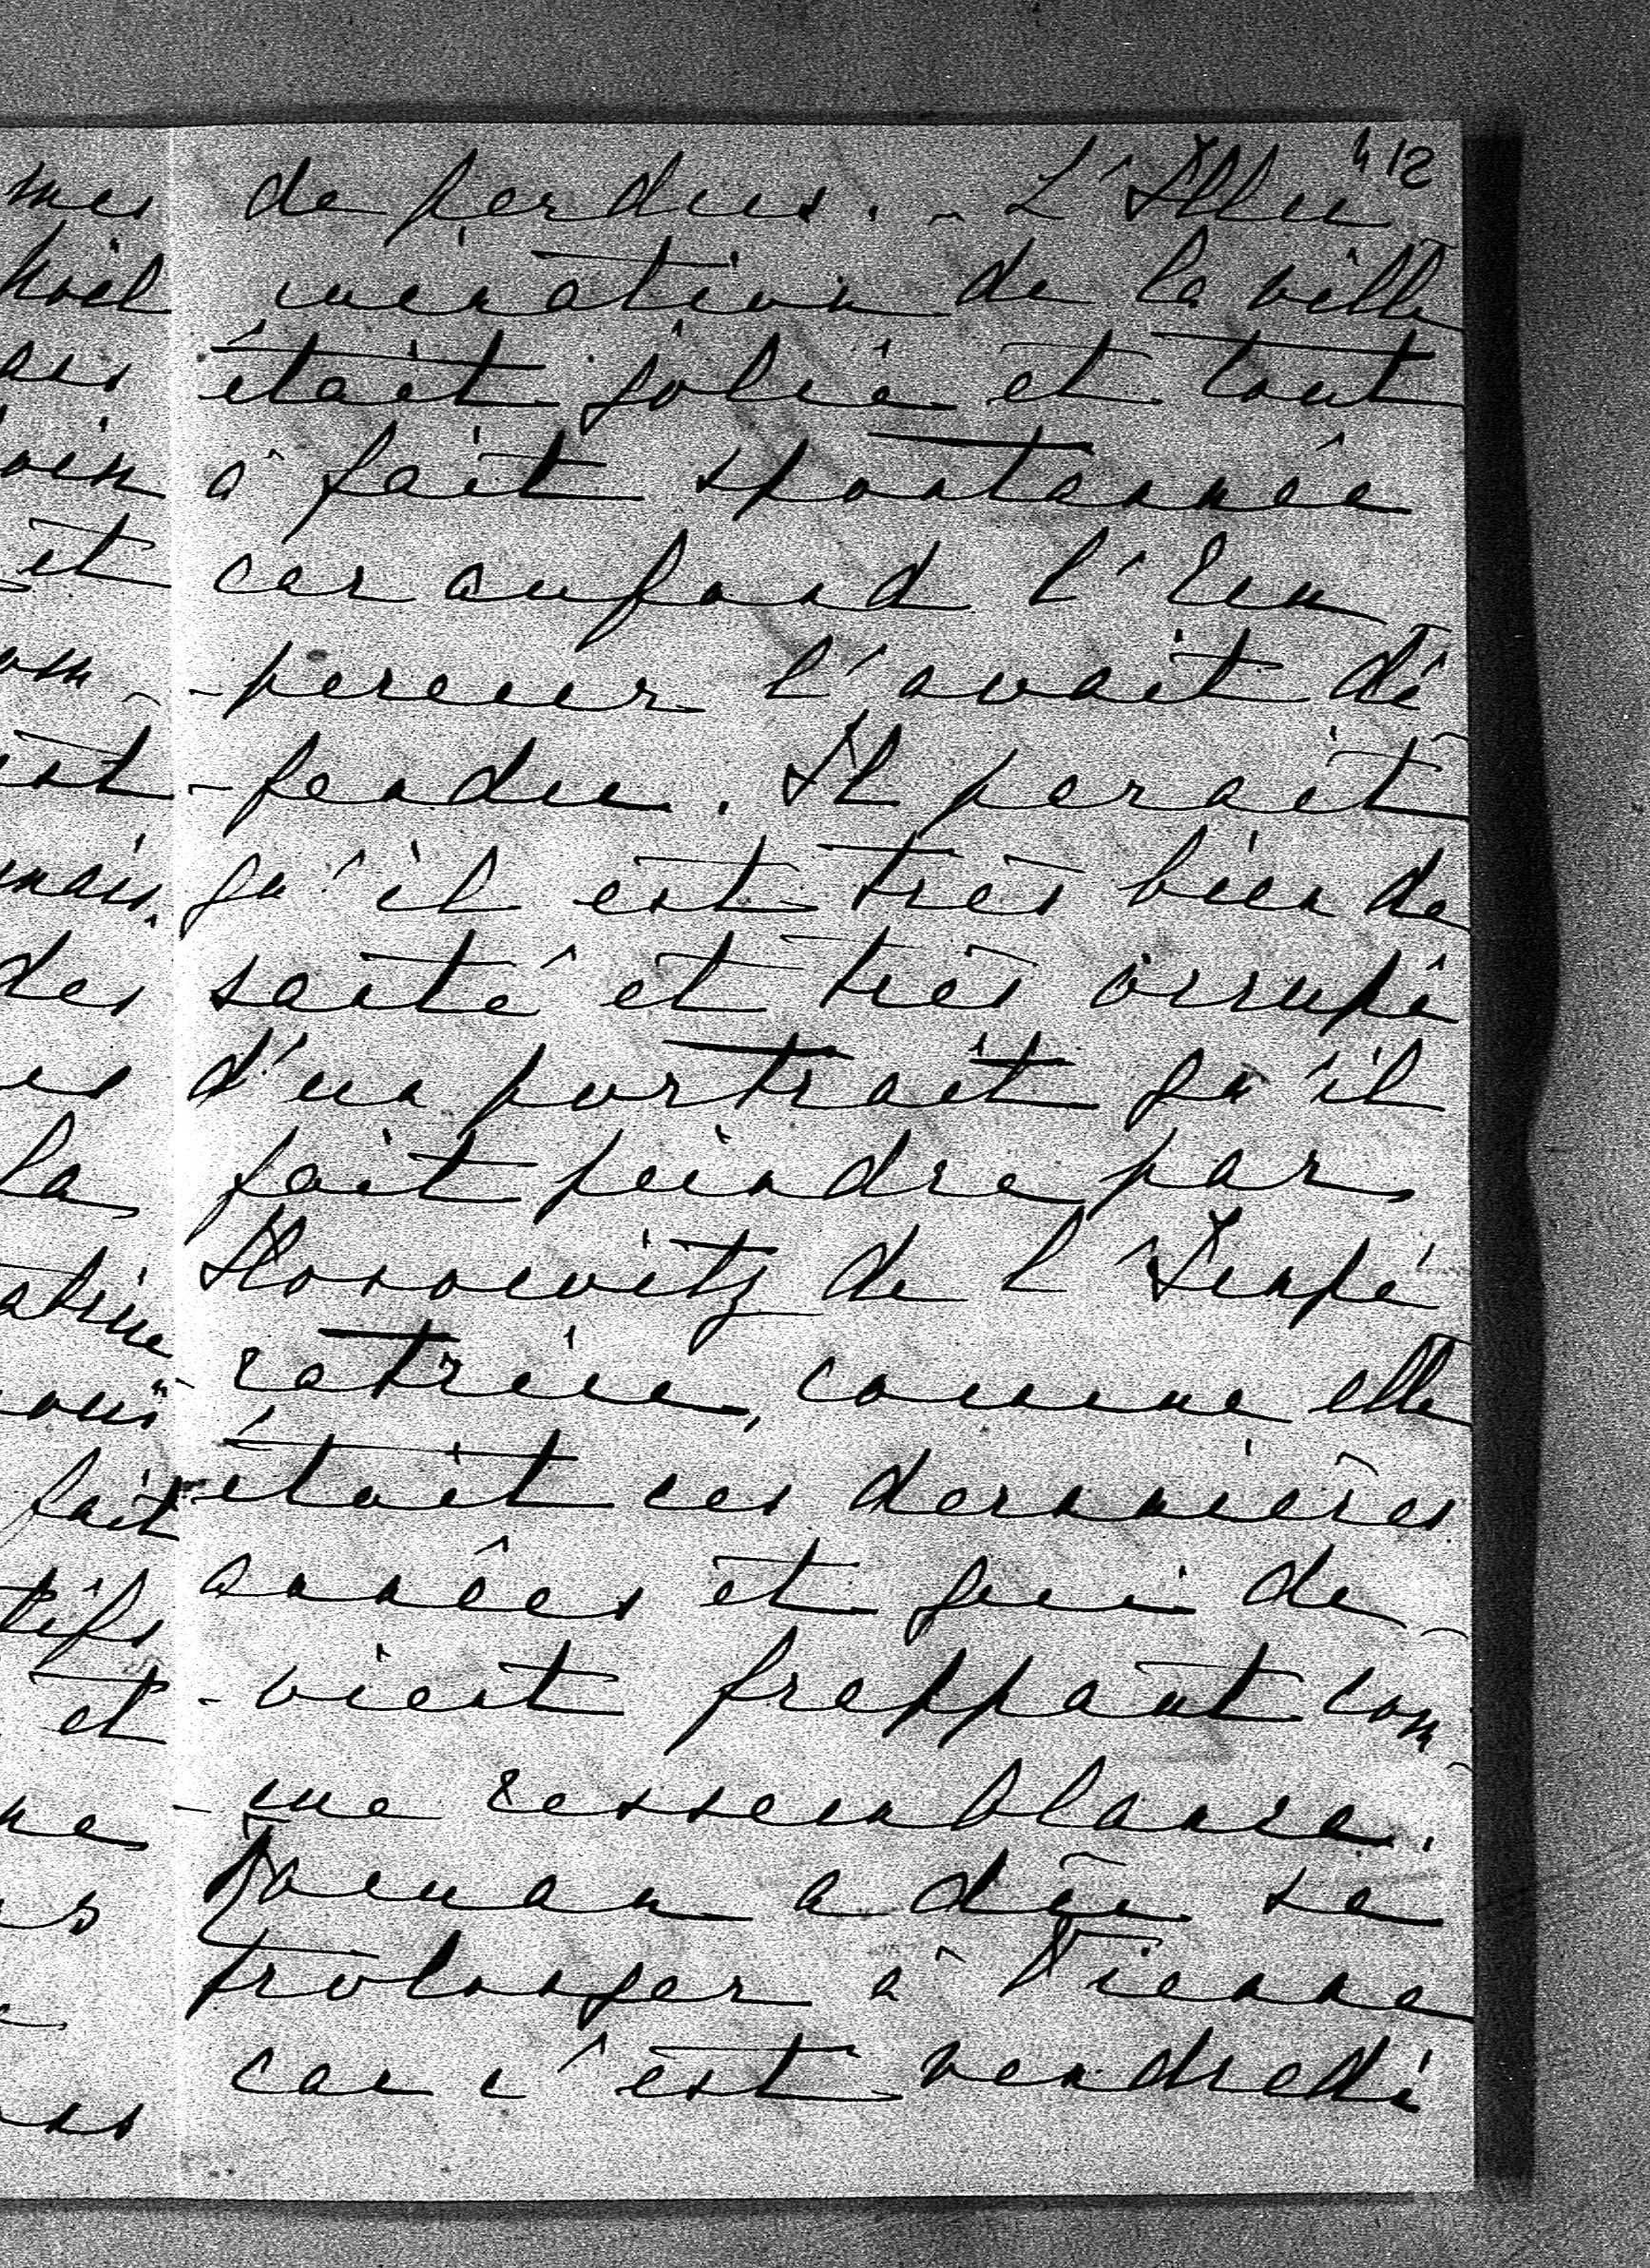 mes
412
de perdus. - L'Illu-
mination de la ville
était jolie et tout
à fait spontannée
car au fond l'Em-
-pereur l'avait dé-
-fendue. Il parait
qu'il est très bien de
santé et très occupé
d'un portrait qu'il
fait peindre par
Horowitz de l'Impé
-ratrice, comme elle
était ces dernnières
années et qui de-
-vient frappant com-
-me ressemblance.
a dû se
prolonger à Vienne
car c'est vendredi
ais
oin
et
om-
est
mais
des
la
atrice
fait
tifs
et
ne